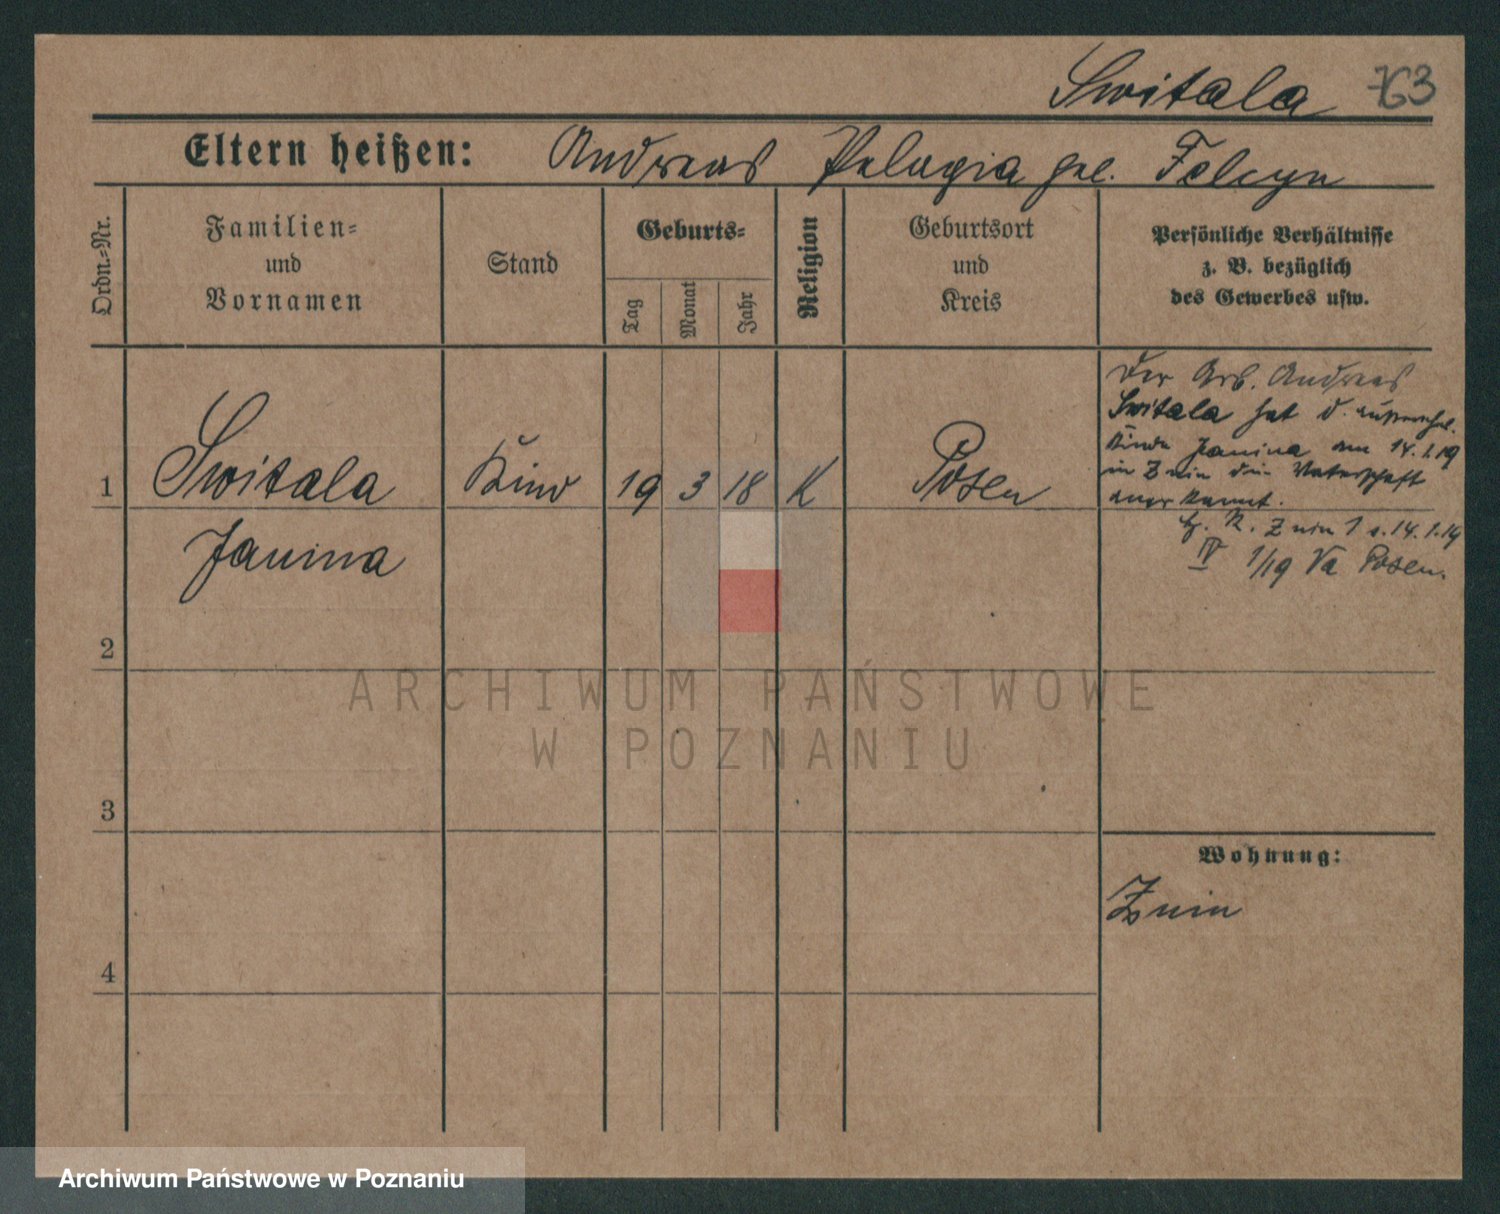 Switala 763
Eltern heißen: Andreas Pelagia geb. Felcyn
Ordn.=Nr.
Familien=
und
Vornamen
Stand
Geburts=
Tag
Monat
Jahr
Religion
Geburtsort
und
Kreis
Persönliche Verhältnisse
z. B. bezüglich
des Gewerbes usw.
1 Switala Kind 19 3 18 K Posen
Janina
Der Arb. Andreas
Switala hat d. außerehel.
Kinde Janina am 14.1.19
in Znin die Vaterschaft
anerkannt.
Znin 1 14.1.19
IV 1/19 Va Posen.
2
3
4
Wohnung:
Znin
ARCHIWUM PAŃSTWOWE
W POZNANIU
Archiwum Państwowe w Poznaniu